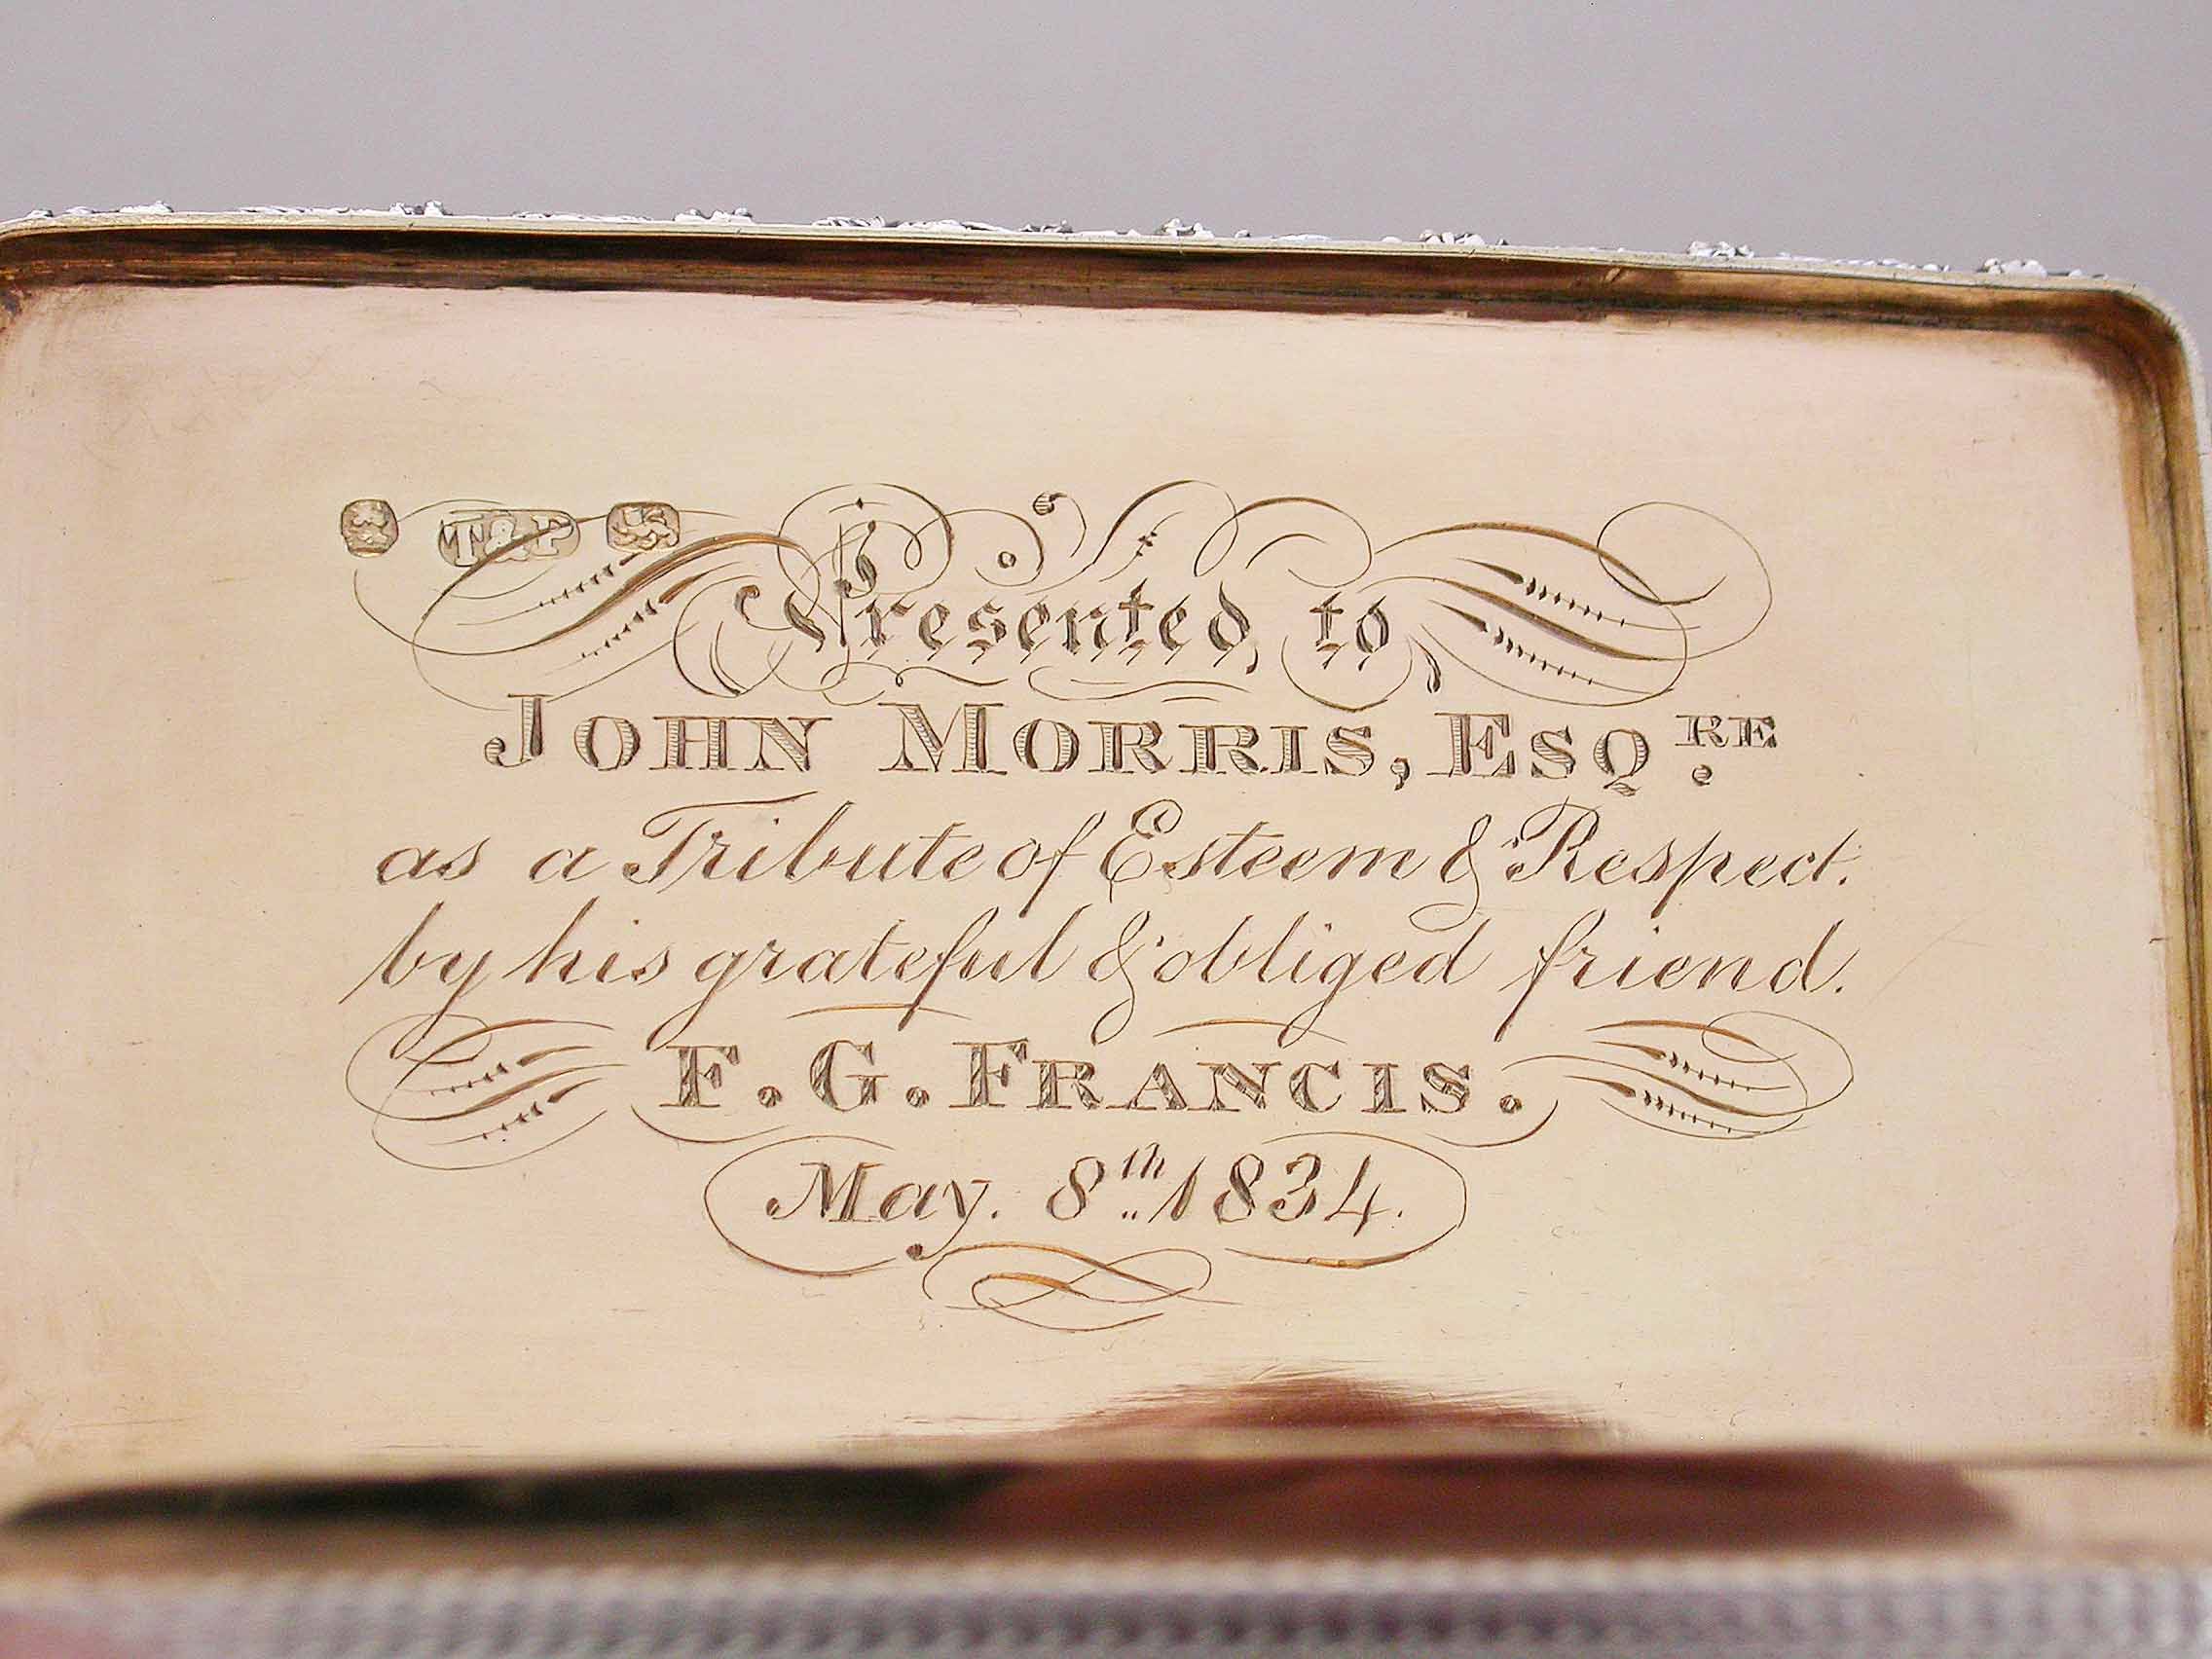 T&P
Presented to
JOHN MORRIS, ESQ.RE
as a Tribute of Esteem & Respect.
by his grateful & obliged friend.
F. G. FRANCIS.
May. 8th 1834.